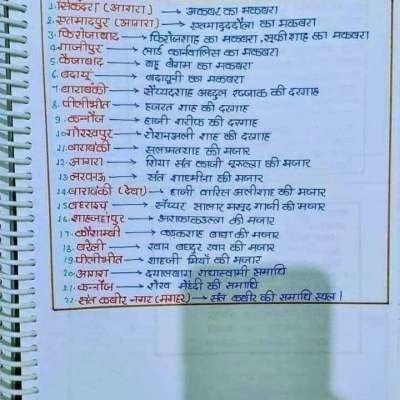 1. सिकंदरा (आगरा) → अकबर का मकबरा
2. एत्मादपुर (आगरा) → एत्मादुददौला का मकबरा
3. फिरोजाबाद → फिरोजशाह का मकबरा, सूफीशाह का मकबरा
4. गाजीपुर → लार्ड कार्नवालिस का मकबरा
5. फैजाबाद → बहू बेगम का मकबरा
6. बदायूं → बदायूनी का मकबरा
7. बाराबंकी → सैय्यदशाह अब्दुल रज्जाक की दरगाह
8. पीलीभीत → हजरत शाह की दरगाह
9. कन्नौज → हाजी शरीफ की दरगाह
10. गोरखपुर → रोशनअली शाह की दरगाह
11. बाराबंकी → सलामतशाह की मजार
12. आगरा → शिया संत काजी नूरुल्ला की मजार
13. लखनऊ → संत शाहमीना की मजार
14. बाराबंकी (देवा) → हाजी वारिस अलीशाह की मजार
15. बहराइच → सैय्यद सालार मसूद गाजी की मजार
16. शाहजहांपुर → अशफाकउल्ला की मजार
17. कौशाम्बी → कड़कशाह बाबा की मजार
18. बरेली → खान बहादुर खान की मजार
19. पीलीभीत → शाहजी मियाँ की मजार
20. आगरा → दयालबाग राधास्वामी समाधि
21. कन्नौज → शेख मेंहदी की समाधि
22. संत कबीर नगर (मगहर) → संत कबीर की समाधि स्थल।